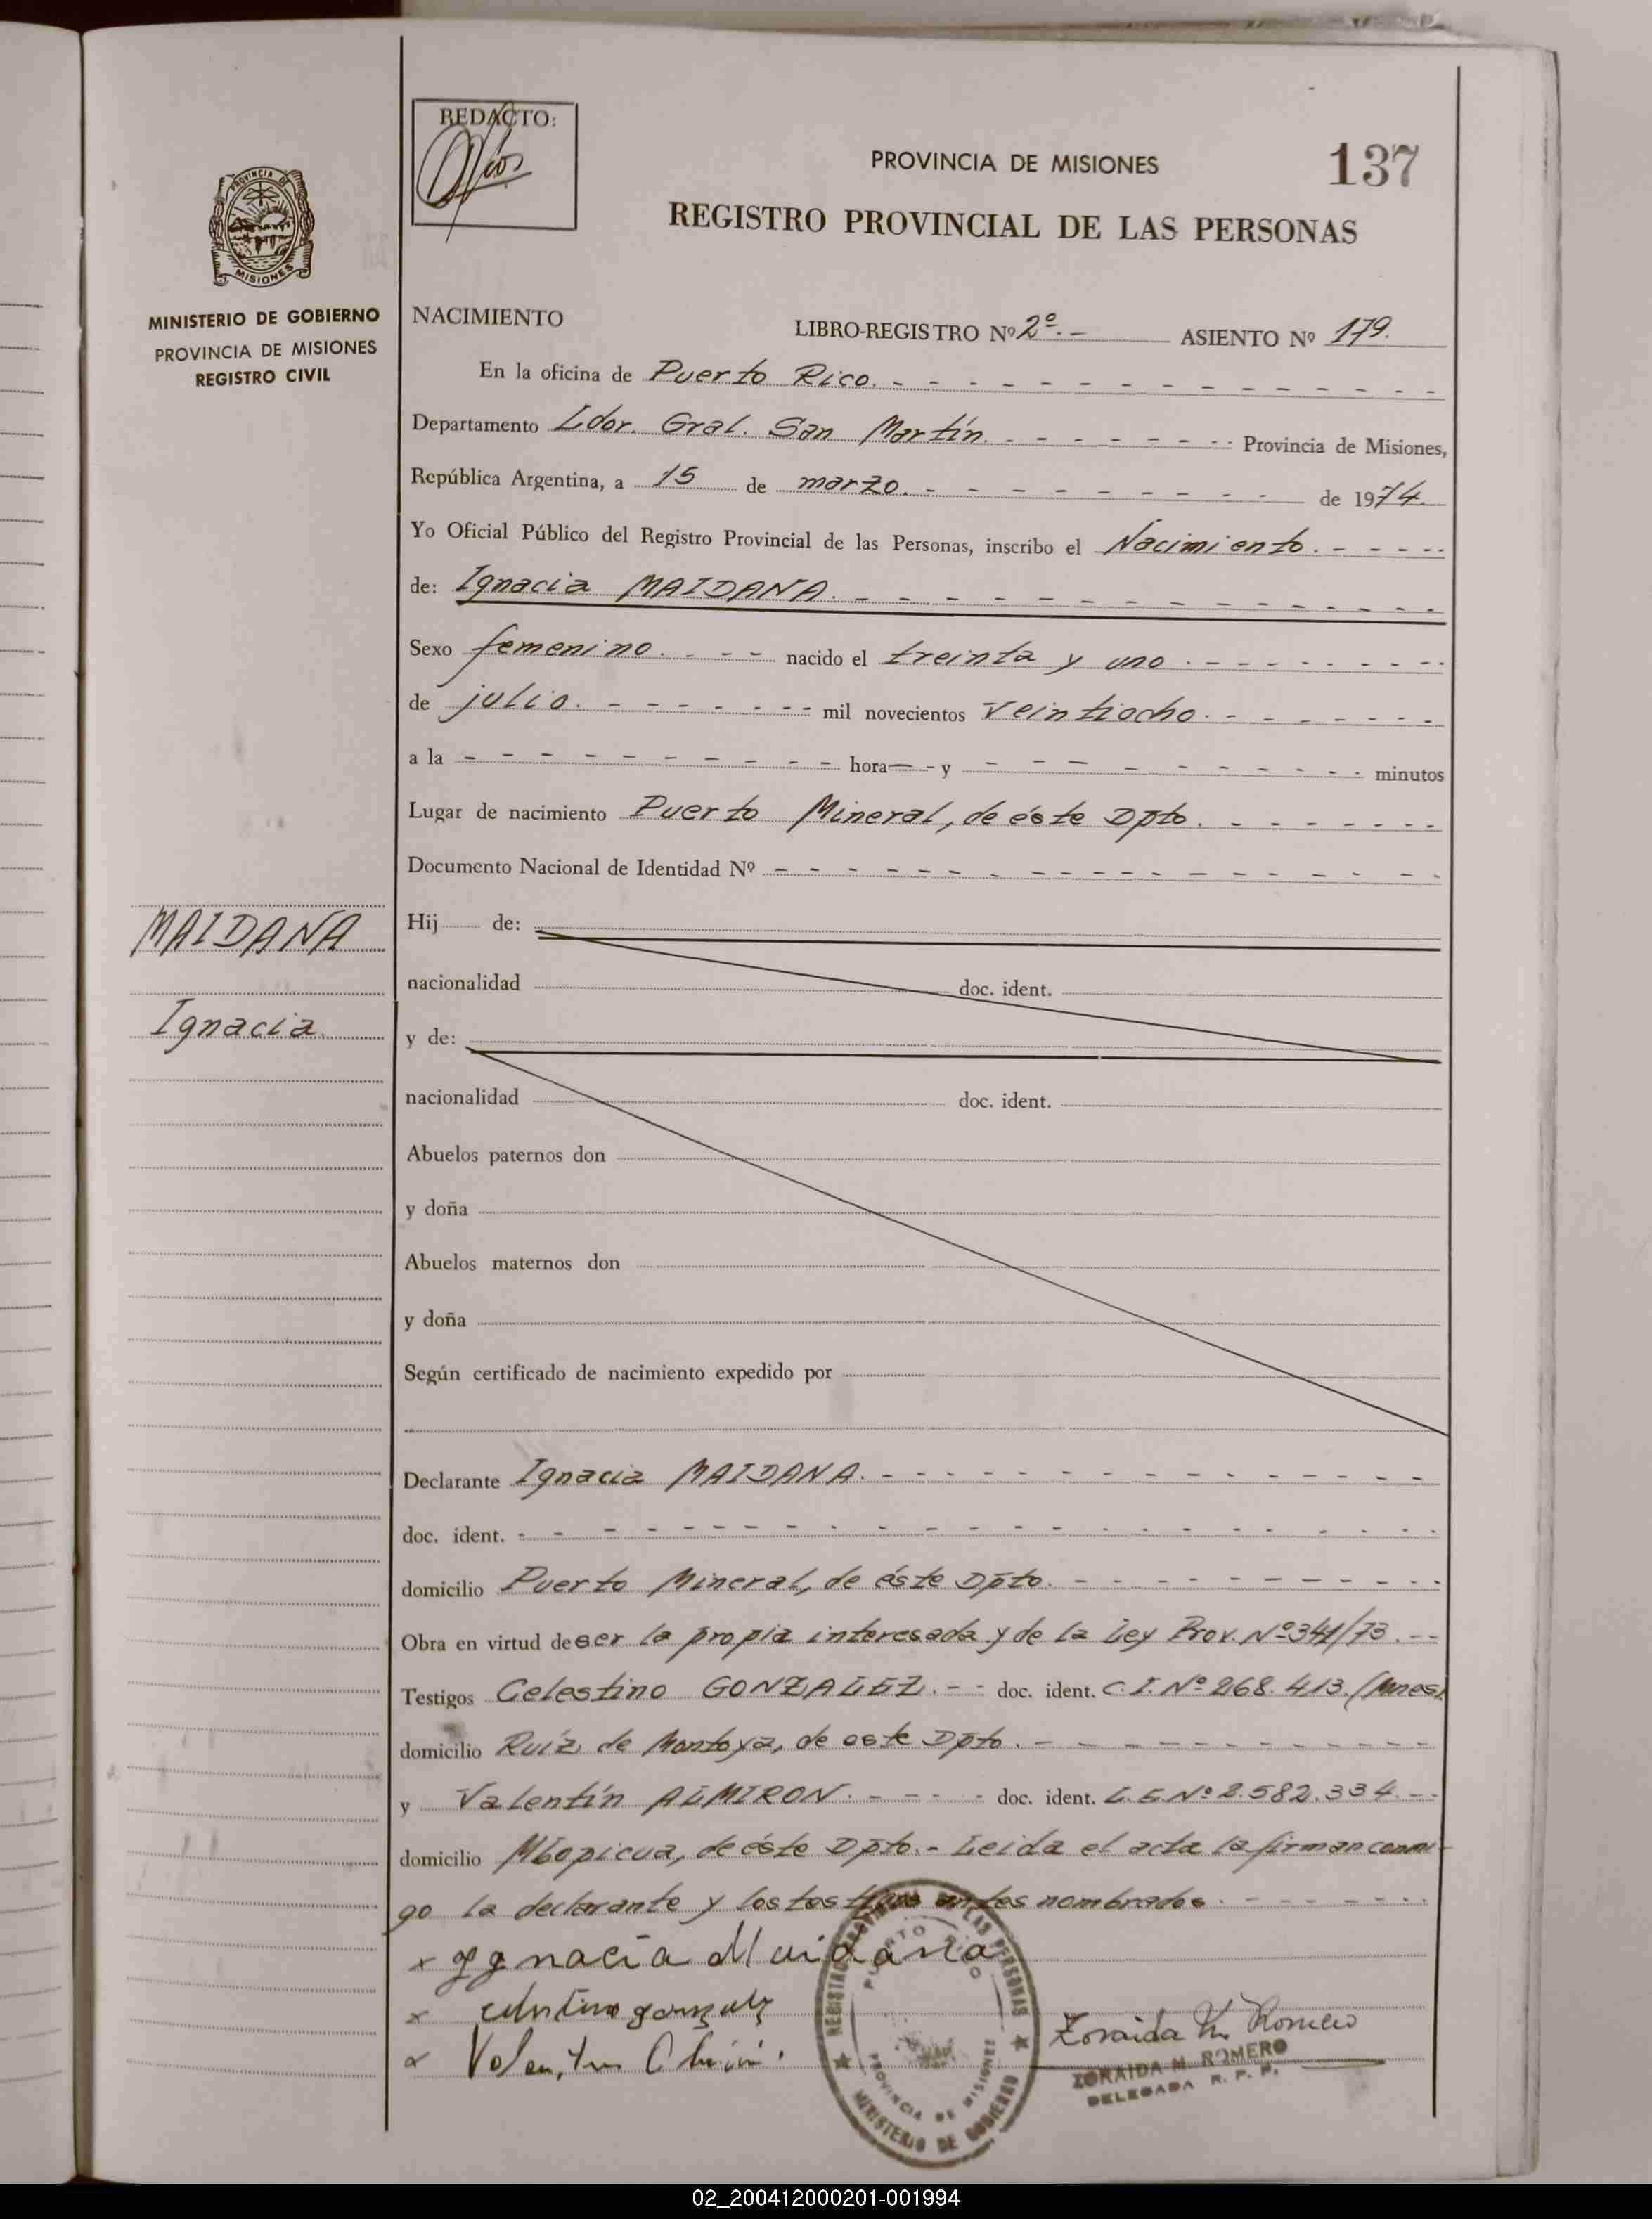 REDACTO:
PROVINCIA DE MISIONES
137
REGISTRO PROVINCIAL DE LAS PERSONAS
PROVINCIA DE
MISIONES
MINISTERIO DE GOBIERNO
PROVINCIA DE MISIONES
REGISTRO CIVIL
NACIMIENTO LIBRO-REGISTRO Nº 2º.- ASIENTO Nº 179.
En la oficina de Puerto Rico.
Departamento Ldor. Gral. San Martín. Provincia de Misiones,
República Argentina, a 15 de marzo. de 1974.
Yo Oficial Público del Registro Provincial de las Personas, inscribo el Nacimiento.
de: Ignacia MAIDANA.
Sexo femenino. nacido el treinta y uno.
de julio. mil novecientos veintiocho.
a la hora y minutos
Lugar de nacimiento Puerto Mineral, de éste Dpto.
Documento Nacional de Identidad Nº
MAIDANA
Ignacia.
Hij de:
nacionalidad doc. ident.
y de:
nacionalidad doc. ident.
Abuelos paternos don
y doña
Abuelos maternos don
y doña
Según certificado de nacimiento expedido por
Declarante Ignacia MAIDANA.
doc. ident.
domicilio Puerto Mineral, de éste Dpto.
Obra en virtud de ser la propia interesada y de la Ley Prov. Nº 341/73.
Testigos Celestino GONZALEZ. doc. ident. C.I. Nº 268.413. (Mnes).
domicilio Ruíz de Montoya, de este Dpto.
y Valentín ALMIRON. doc. ident. L.E. Nº 2.582.334.
domicilio Mbopicua, de éste Dpto.- Leida el acta la firman conmi-
go la declarante y los testigos antes nombrados.
x Ignacia Maidana
x Celestino Gonzalez
x Valentin
REGISTRO PROVINCIAL DE LAS PERSONAS
PUERTO RICO
PROVINCIA DE MISIONES
MINISTERIO DE GOBIERNO
Zoraida M. Romero
ZORAIDA M. ROMERO
DELEGADA R. P. P.
02_200412000201-001994